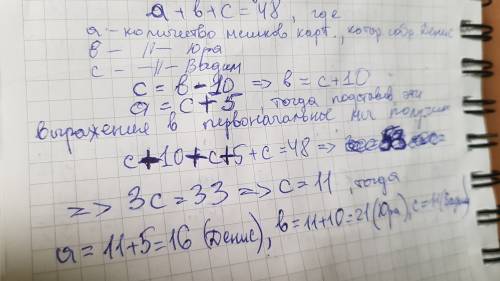 a + b + c = 48, где
a - количество мешков карт., котор. собр. Денис
b - —||— Юра
c - —||— Вадим
c = b - 10 => b = c + 10
a = c + 5, тогда подставив эти
выражение в первоначальное мы получим
c + 10 + c + 5 + c = 48 =>
=> 3c = 33 => c = 11, тогда
a = 11 + 5 = 16 (Денис), b = 11 + 10 = 21 (Юра), c = 11 (Вадим)